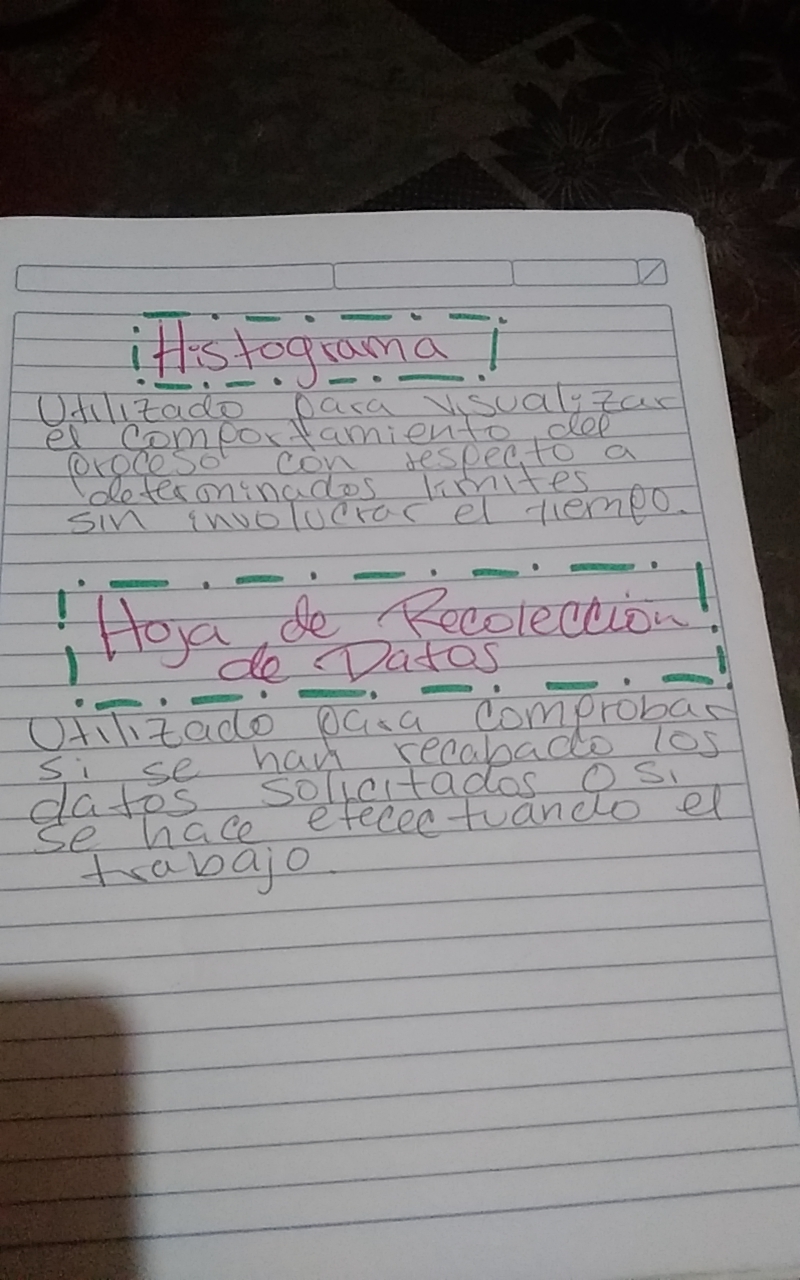 Histograma
Utilizado para visualizar
el comportamiento del
proceso con respecto a
determinados limites
sin involucrar el tiempo.
Hoja de Recolección
de Datos
Utilizado para comprobar
si se han recabado los
datos solicitados o si
se hace efecectuando el
trabajo.